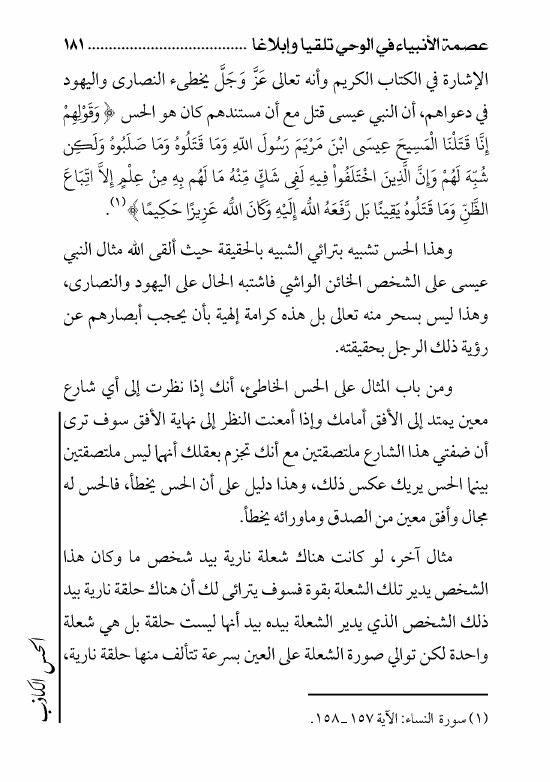 عصمة الأنبياء في الوحي تلقيا وإبلاغا ...................................... ١٨١
الإشارة في الكتاب الكريم وأنه تعالى عَزَّ وَجَلَّ يخطىء النصارى واليهود
في دعواهم، أن النبي عيسى قتل مع أن مستندهم كان هو الحس ﴿ وَقَوْلِهِمْ
إِنَّا قَتَلْنَا الْمَسِيحَ عِيسَى ابْنَ مَرْيَمَ رَسُولَ اللّهِ وَمَا قَتَلُوهُ وَمَا صَلَبُوهُ وَلَكِن
شُبِّهَ لَهُمْ وَإِنَّ الَّذِينَ اخْتَلَفُواْ فِيهِ لَفِي شَكٍّ مِّنْهُ مَا لَهُم بِهِ مِنْ عِلْمٍ إِلاَّ اتِّبَاعَ
الظَّنِّ وَمَا قَتَلُوهُ يَقِينًا بَل رَّفَعَهُ اللّه إِلَيْهِ وَكَانَ اللّه عَزِيزًا حَكِيمًا ﴾(١).
وهذا الحس تشبيه بترائي الشبيه بالحقيقة حيث ألقى الله مثال النبي
عيسى على الشخص الخائن الواشي فاشتبه الحال على اليهود والنصارى،
وهذا ليس بسحر منه تعالى بل هذه كرامة إلهية بأن يحجب أبصارهم عن
رؤية ذلك الرجل بحقيقته.
ومن باب المثال على الحس الخاطئ، أنك إذا نظرت إلى أي شارع
معين يمتد إلى الأفق أمامك وإذا أمعنت النظر إلى نهاية الأفق سوف ترى
أن ضفتي هذا الشارع ملتصقتين مع أنك تجزم بعقلك أنهما ليس ملتصقتين
بينما الحس يريك عكس ذلك، وهذا دليل على أن الحس يخطأ، فالحس له
مجال وأفق معين من الصدق وماورائه يخطأ.
مثال آخر، لو كانت هناك شعلة نارية بيد شخص ما وكان هذا
الشخص يدير تلك الشعلة بقوة فسوف يترائى لك أن هناك حلقة نارية بيد
ذلك الشخص الذي يدير الشعلة بيده بيد أنها ليست حلقة بل هي شعلة
واحدة لكن توالي صورة الشعلة على العين بسرعة تتألف منها حلقة نارية،
الحس الكاذب
(١) سورة النساء: الآية ١٥٧ـ١٥٨.